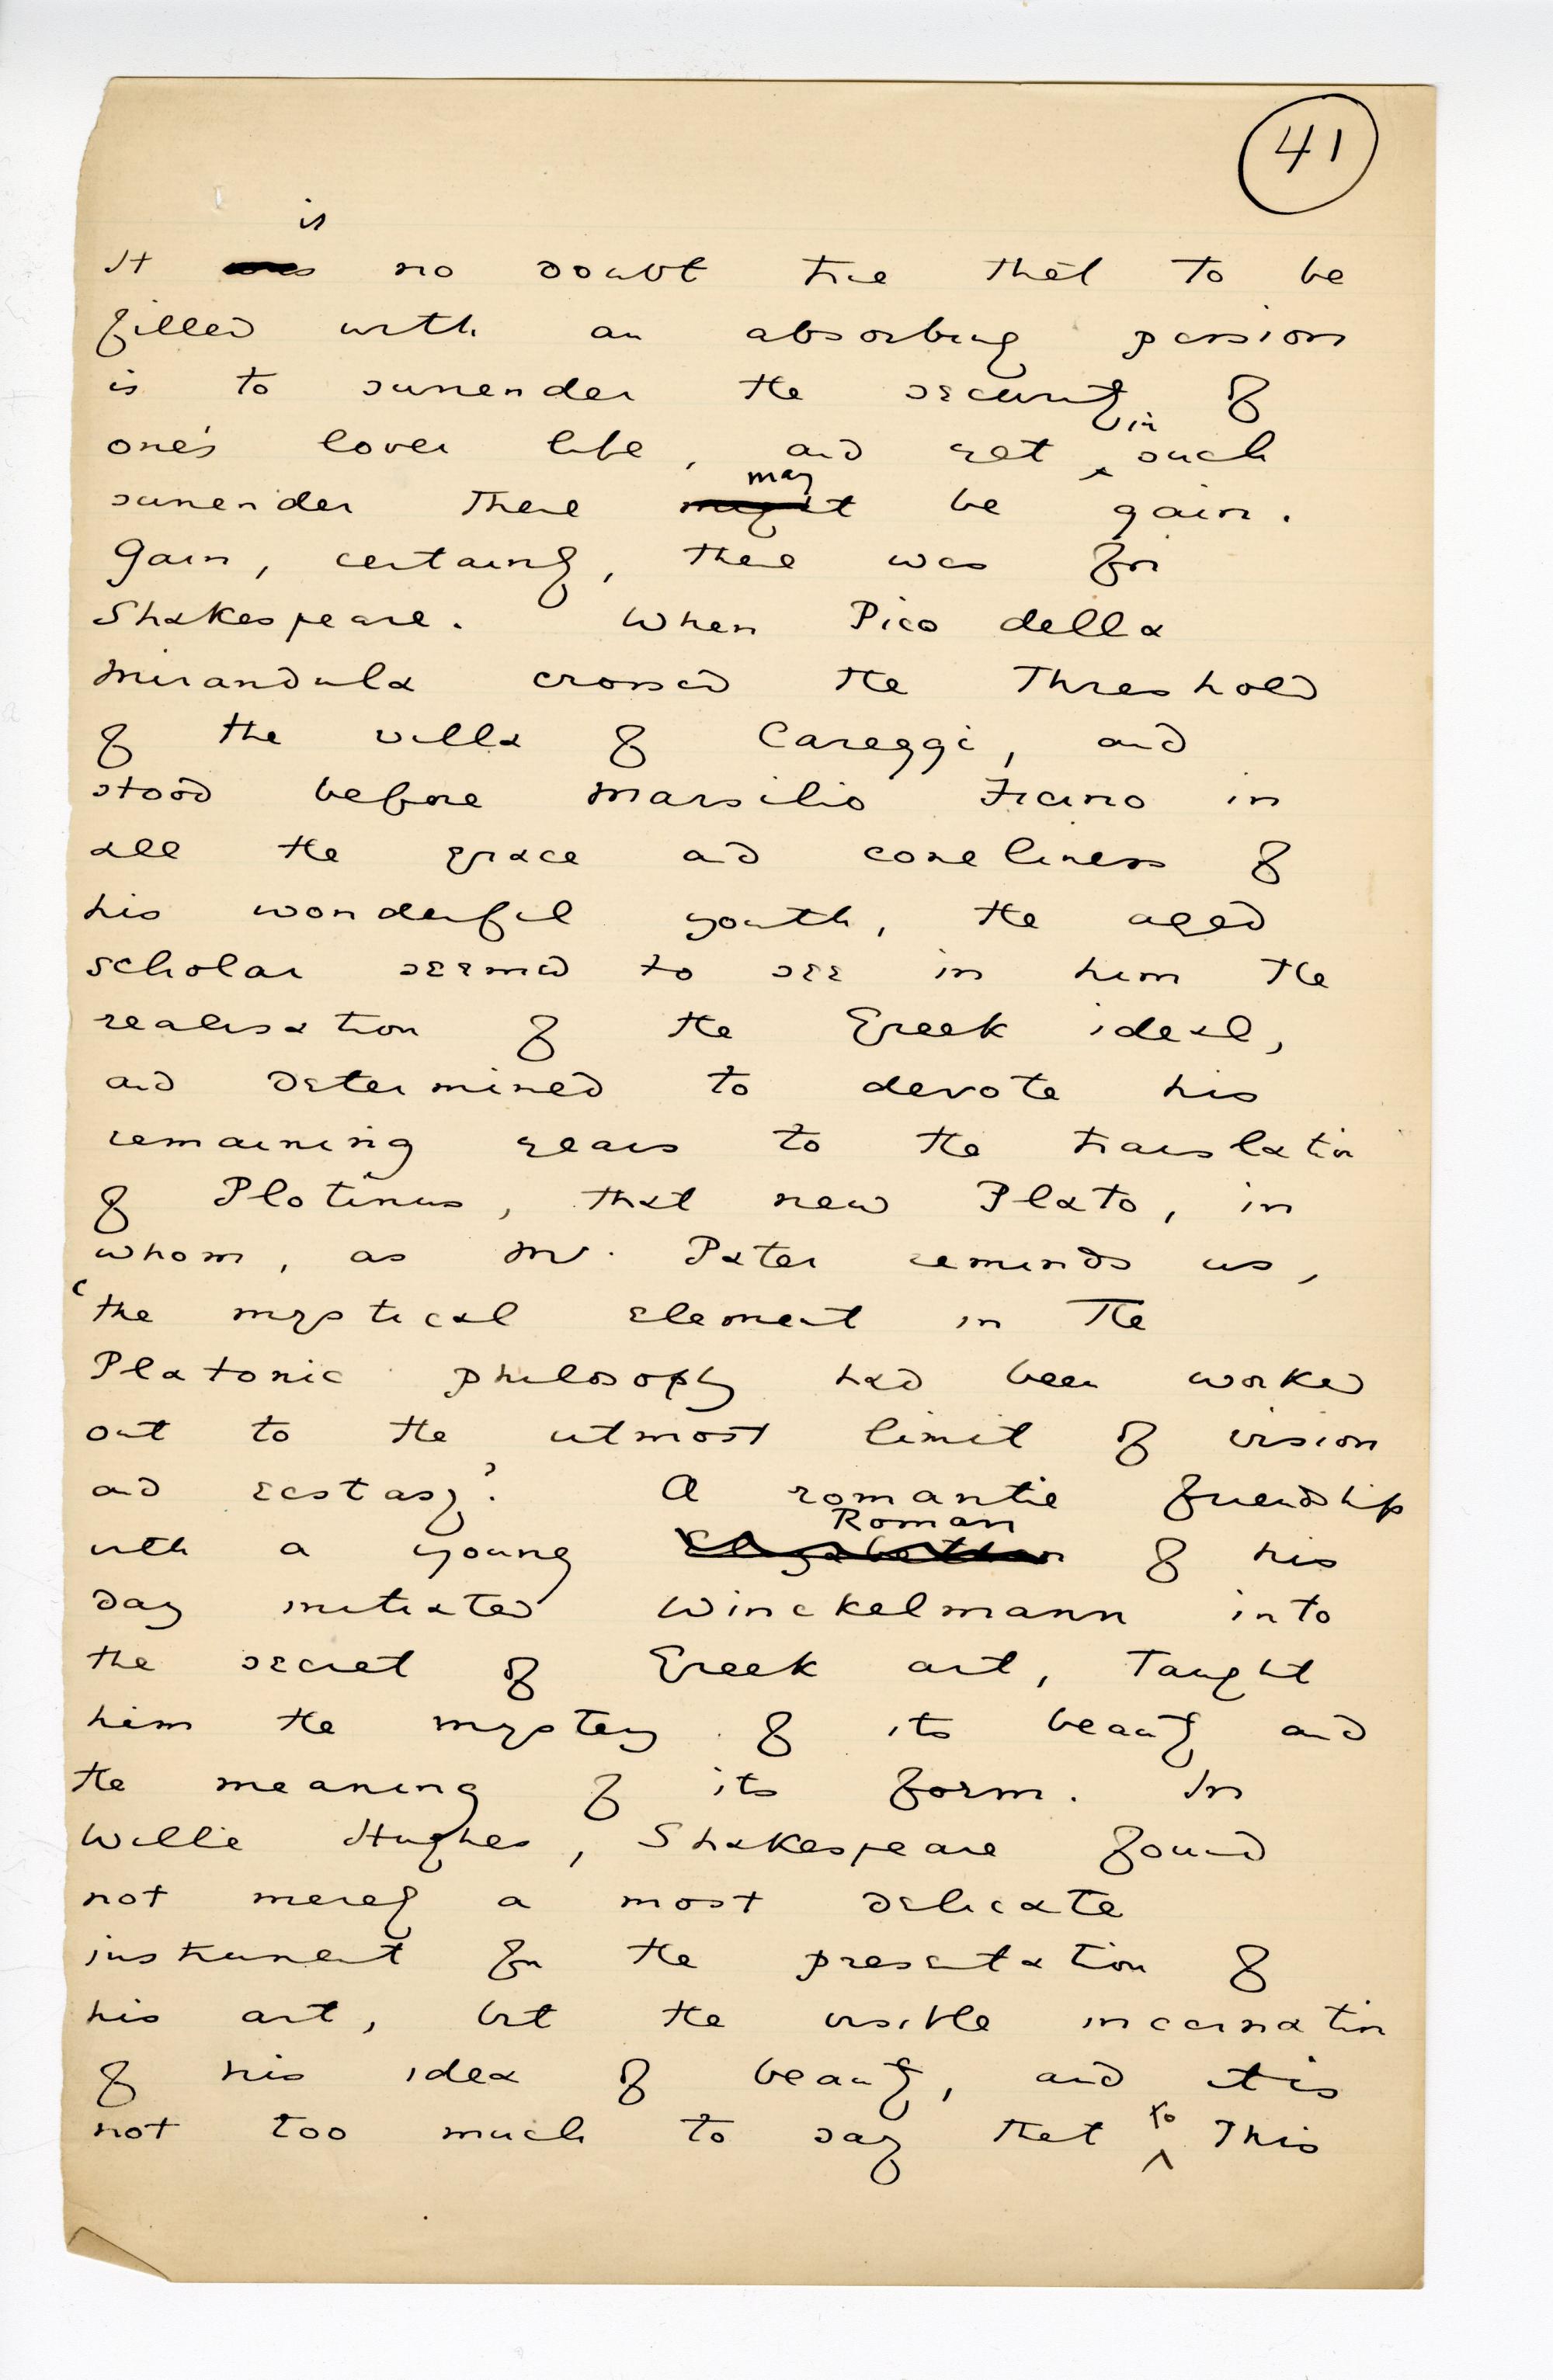 41
is
It was no doubt true that to be
filled with an absorbing passion
is to surrender the security of
in
one's lower life, and yet ^ such
may
surrender there might be gain.
Gain, certainly, there was for
Shakespeare. When Pico della
Mirandula crossed the threshold
of the villa of Careggi, and
stood before Marsilio Ficino in
all the grace and comeliness of
his wonderful youth, the aged
scholar seemed to see in him the
realisation of the Greek ideal,
and determined to devote his
remaining years to the translation
of Plotinus, that new Plato, in
whom, as Mr. Pater reminds us,
'the mystical element in the
Platonic philosophy had been worked
out to the utmost limit of vision
and ecstasy.' A romantic friendship
Roman
with a young Elizabethan of his
day initiated Winckelmann into
the secret of Greek art, taught
him the mystery of its beauty and
the meaning of its form. In
Willie Hughes, Shakespeare found
not merely a most delicate
instrument for the presentation of
his art, but the visible incarnation
of his idea of beauty, and it is
to
not too much to say that ^ this